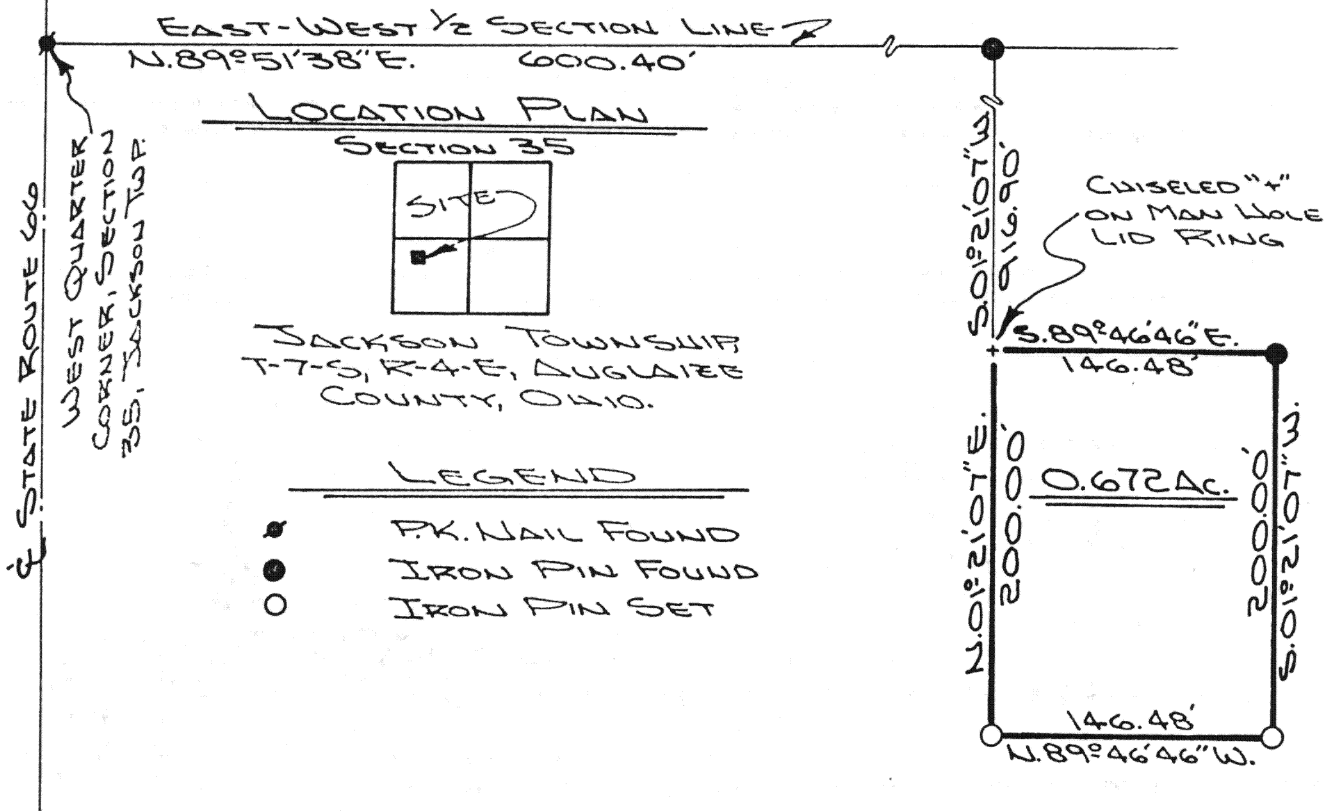 EAST-WEST 1/2 SECTION LINE
N.89°51'38"E. 600.40'
LOCATION PLAN
SECTION 35
SITE
JACKSON TOWNSHIP,
T-7-S, R-4-E, AUGLAIZE
COUNTY, OHIO.
LEGEND
P.K. NAIL FOUND
IRON PIN FOUND
IRON PIN SET
℄ STATE ROUTE 66
WEST QUARTER
CORNER, SECTION
35, JACKSON TWP.
S.01°21'07"W.
916.90'
CHISELED "+"
ON MAN HOLE
LID RING
S.89°46'46"E.
146.48'
N.01°21'07"E.
200.00'
0.672 AC.
200.00'
S.01°21'07"W.
146.48'
N.89°46'46"W.